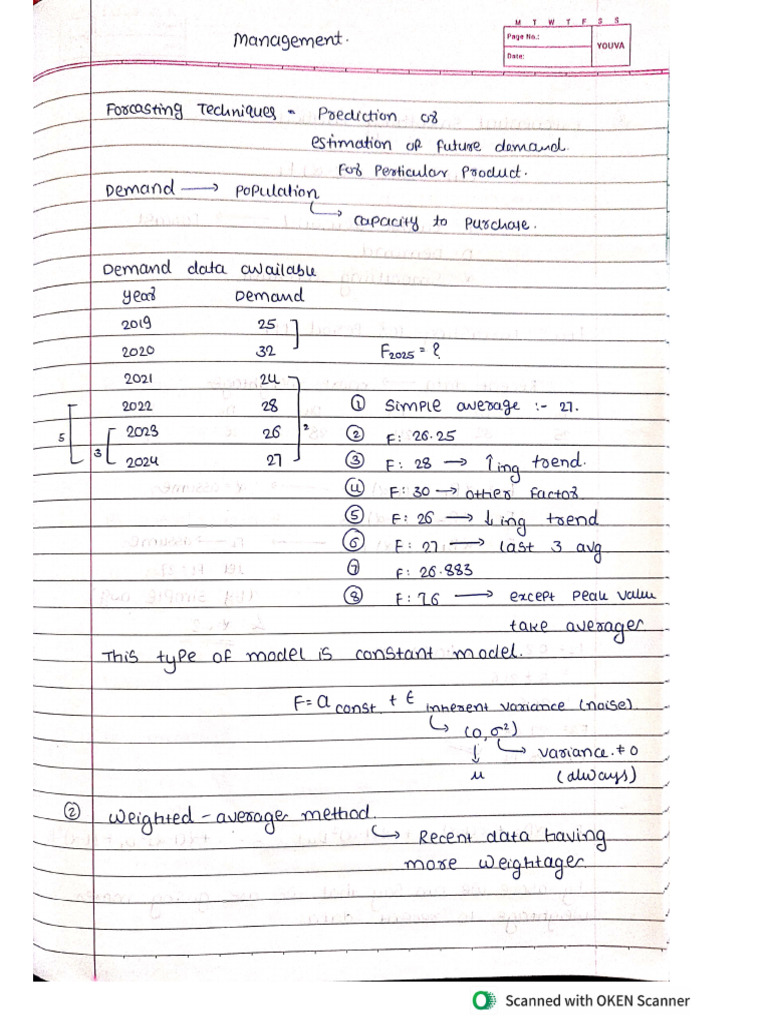 Management.
M T W T F S S
Page No.:
Date:
YOUVA
Forcasting Techniques - Prediction or
estimation of future demand.
For Perticular Product.
Demand → Population
↳ capacity to Purchase.
Demand data available
year Demand
2019 25
2020 32 F2025 = ?
2021 24
2022 28 ① Simple average :- 27.
5 3 2023 26 2 ② F: 26.25
2024 27 ③ F: 28 → ↑ing trend.
④ F: 30 → other factor
⑤ F: 26 → ↓ing trend
⑥ F: 27 → last 3 avg
⑦ F: 26.883
⑧ F: 26 → except Peak value
take average
This type of model is constant model.
F = a const + ϵ inherent variance (noise)
↳ (0, σ²)
↓ ↳ variance ≠ 0
μ (always)
② Weighted - average method.
↳ Recent data having
more weightage.
Scanned with OKEN Scanner